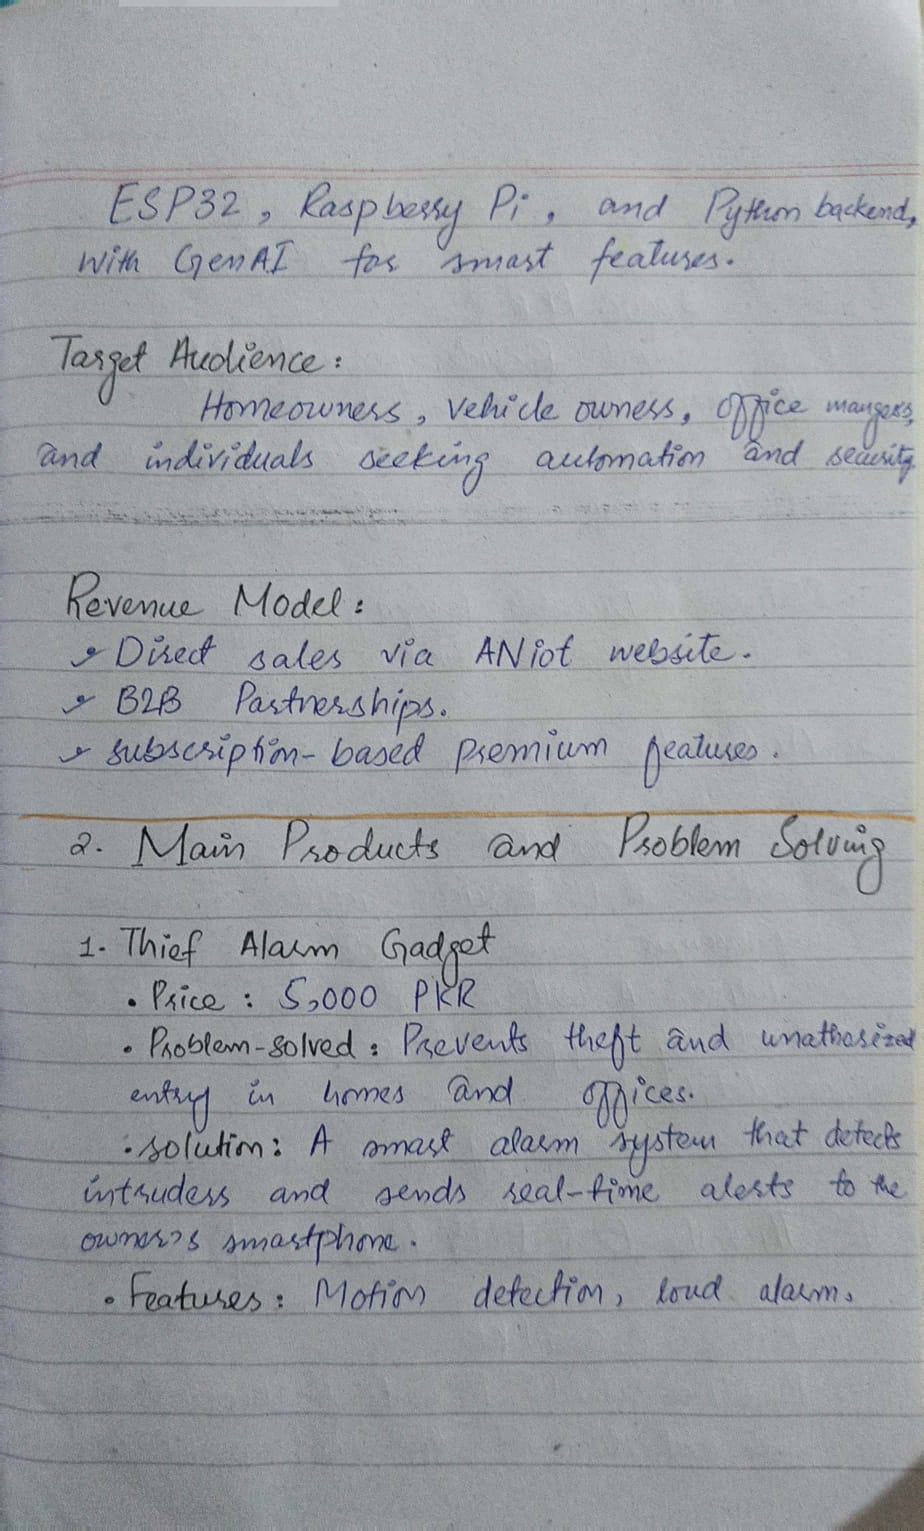 ESP32, Raspberry Pi, and Python backend,
with GenAI for smart features.
Target Audience:
Homeowners, vehicle owners, office mangers,
and individuals seeking automation and security
Revenue Model:
Direct sales via ANiot website.
B2B Partnerships.
subscription-based premium features.
2. Main Products and Problem Solving
1. Thief Alarm Gadget
• Price : 5,000 PKR
• Problem-solved : Prevents theft and unathorized
entry in homes and offices.
• solution : A smart alarm system that detects
intruders and sends real-time alerts to the
owner's smartphone.
• Features : Motion detection, loud alarm,